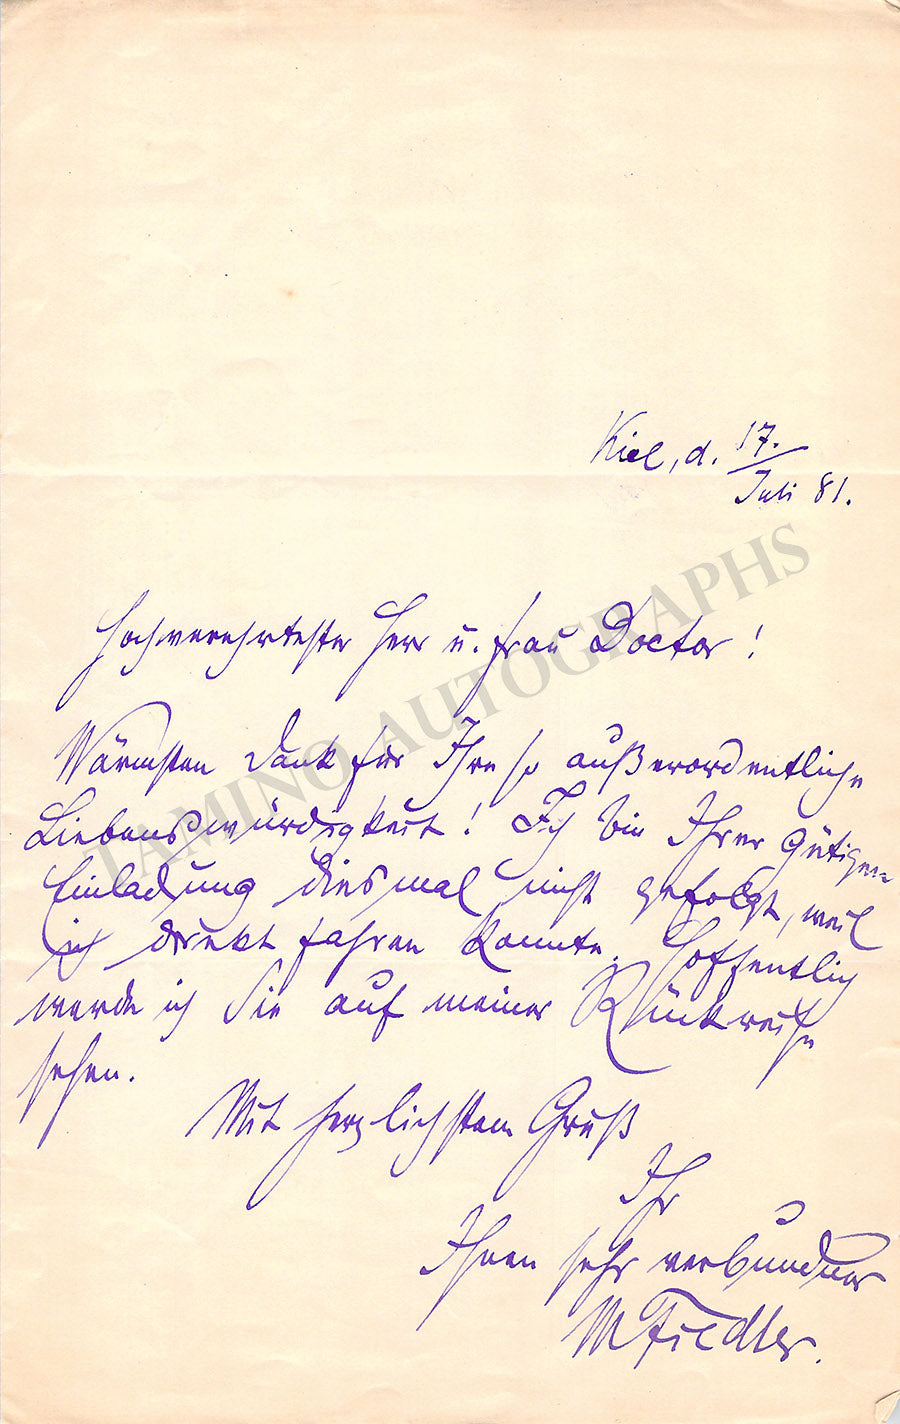 Kiel, d. 17.
Juli 81.
Hochverehrtester Herr u. Frau Doctor!
Wärmsten Dank für Ihre so außerordentliche
Liebenswürdigkeit! Ich bin Ihrer gütigen
Einladung diesmal nicht gefolgt, weil
ich direkt fahren konnte. Hoffentlich
werde ich Sie auf meiner Rückreise
sehen.
Mit herzlichstem Gruß
Ihr
Ihnen sehr verbundner
M Fiedler.
TAMINO AUTOGRAPHS